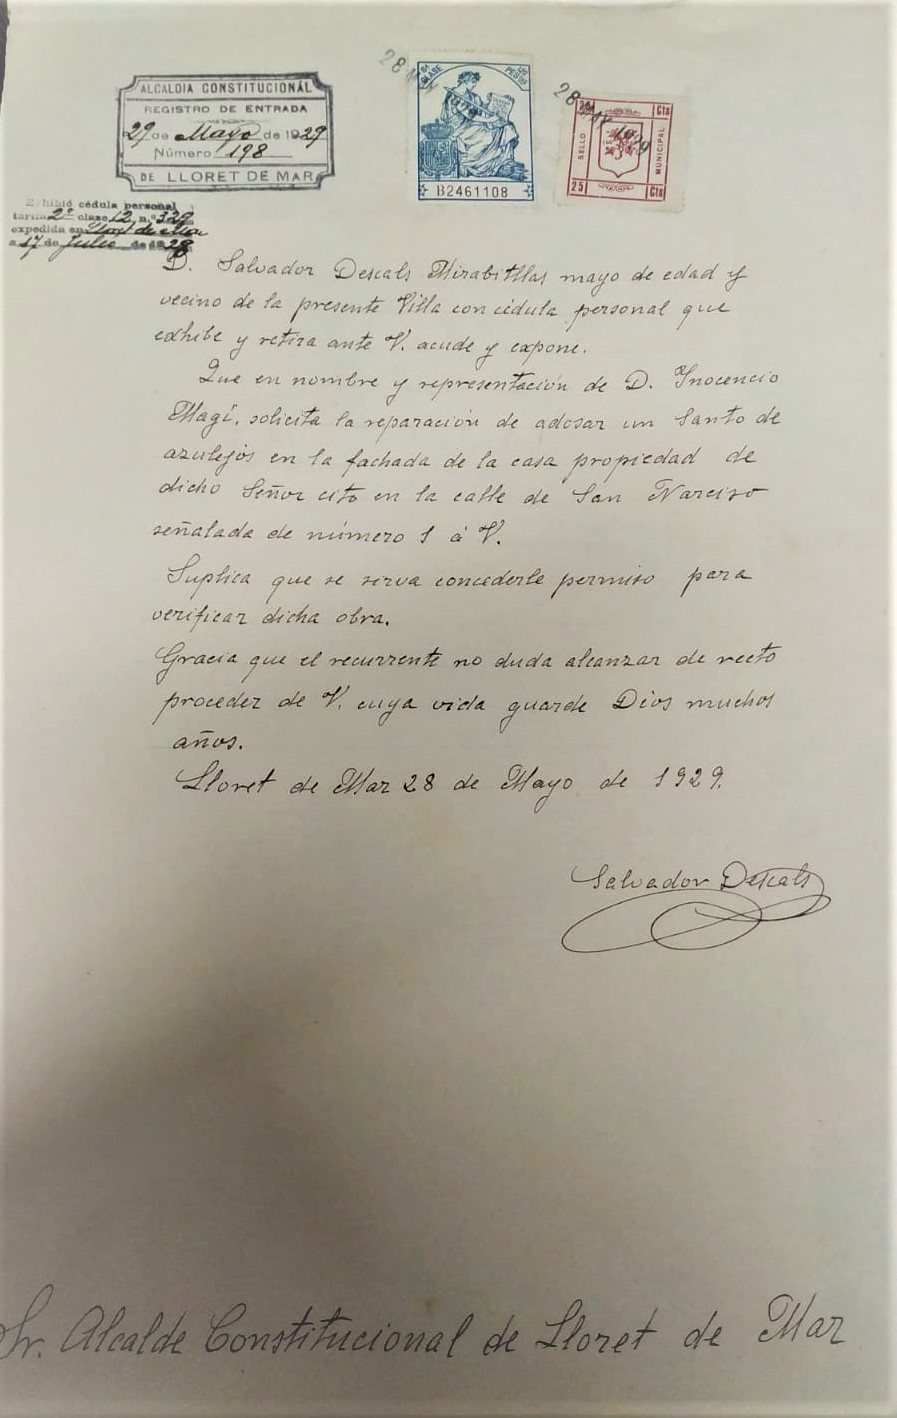 ALCALDIA CONSTITUCIONAL
REGISTRO DE ENTRADA
29 de Mayo de 1929
Número 198
DE LLORET DE MAR
Exhibió cédula personal
tarifa 2ª clase 12 n.º 329
expedida en Lloret de Mar
a 17 de Julio de 1928
28 MAY 1929
8ª CLASE
PESETAS
B2461108
28 MAY 1929
25 Cts
SELLO MUNICIPAL
25 Cts
D. Salvador Descals Mirabitllas mayo de edad y
vecino de la presente Villa con cédula personal que
exhibe y retira ante V. acude y expone.
Que en nombre y representación de D. Inocencio
Magí, solicita la reparación de adosar un Santo de
azulejos en la fachada de la casa propiedad de
dicho Señor cito en la calle de San Narciso
señalada de número 1 á V.
Suplica que se sirva concederle permiso para
verificar dicha obra.
Gracia que el recurrente no duda alcanzar de recto
proceder de V. cuya vida guarde Dios muchos
años.
Lloret de Mar 28 de Mayo de 1929.
Salvador Descals
Sr. Alcalde Constitucional de Lloret de Mar